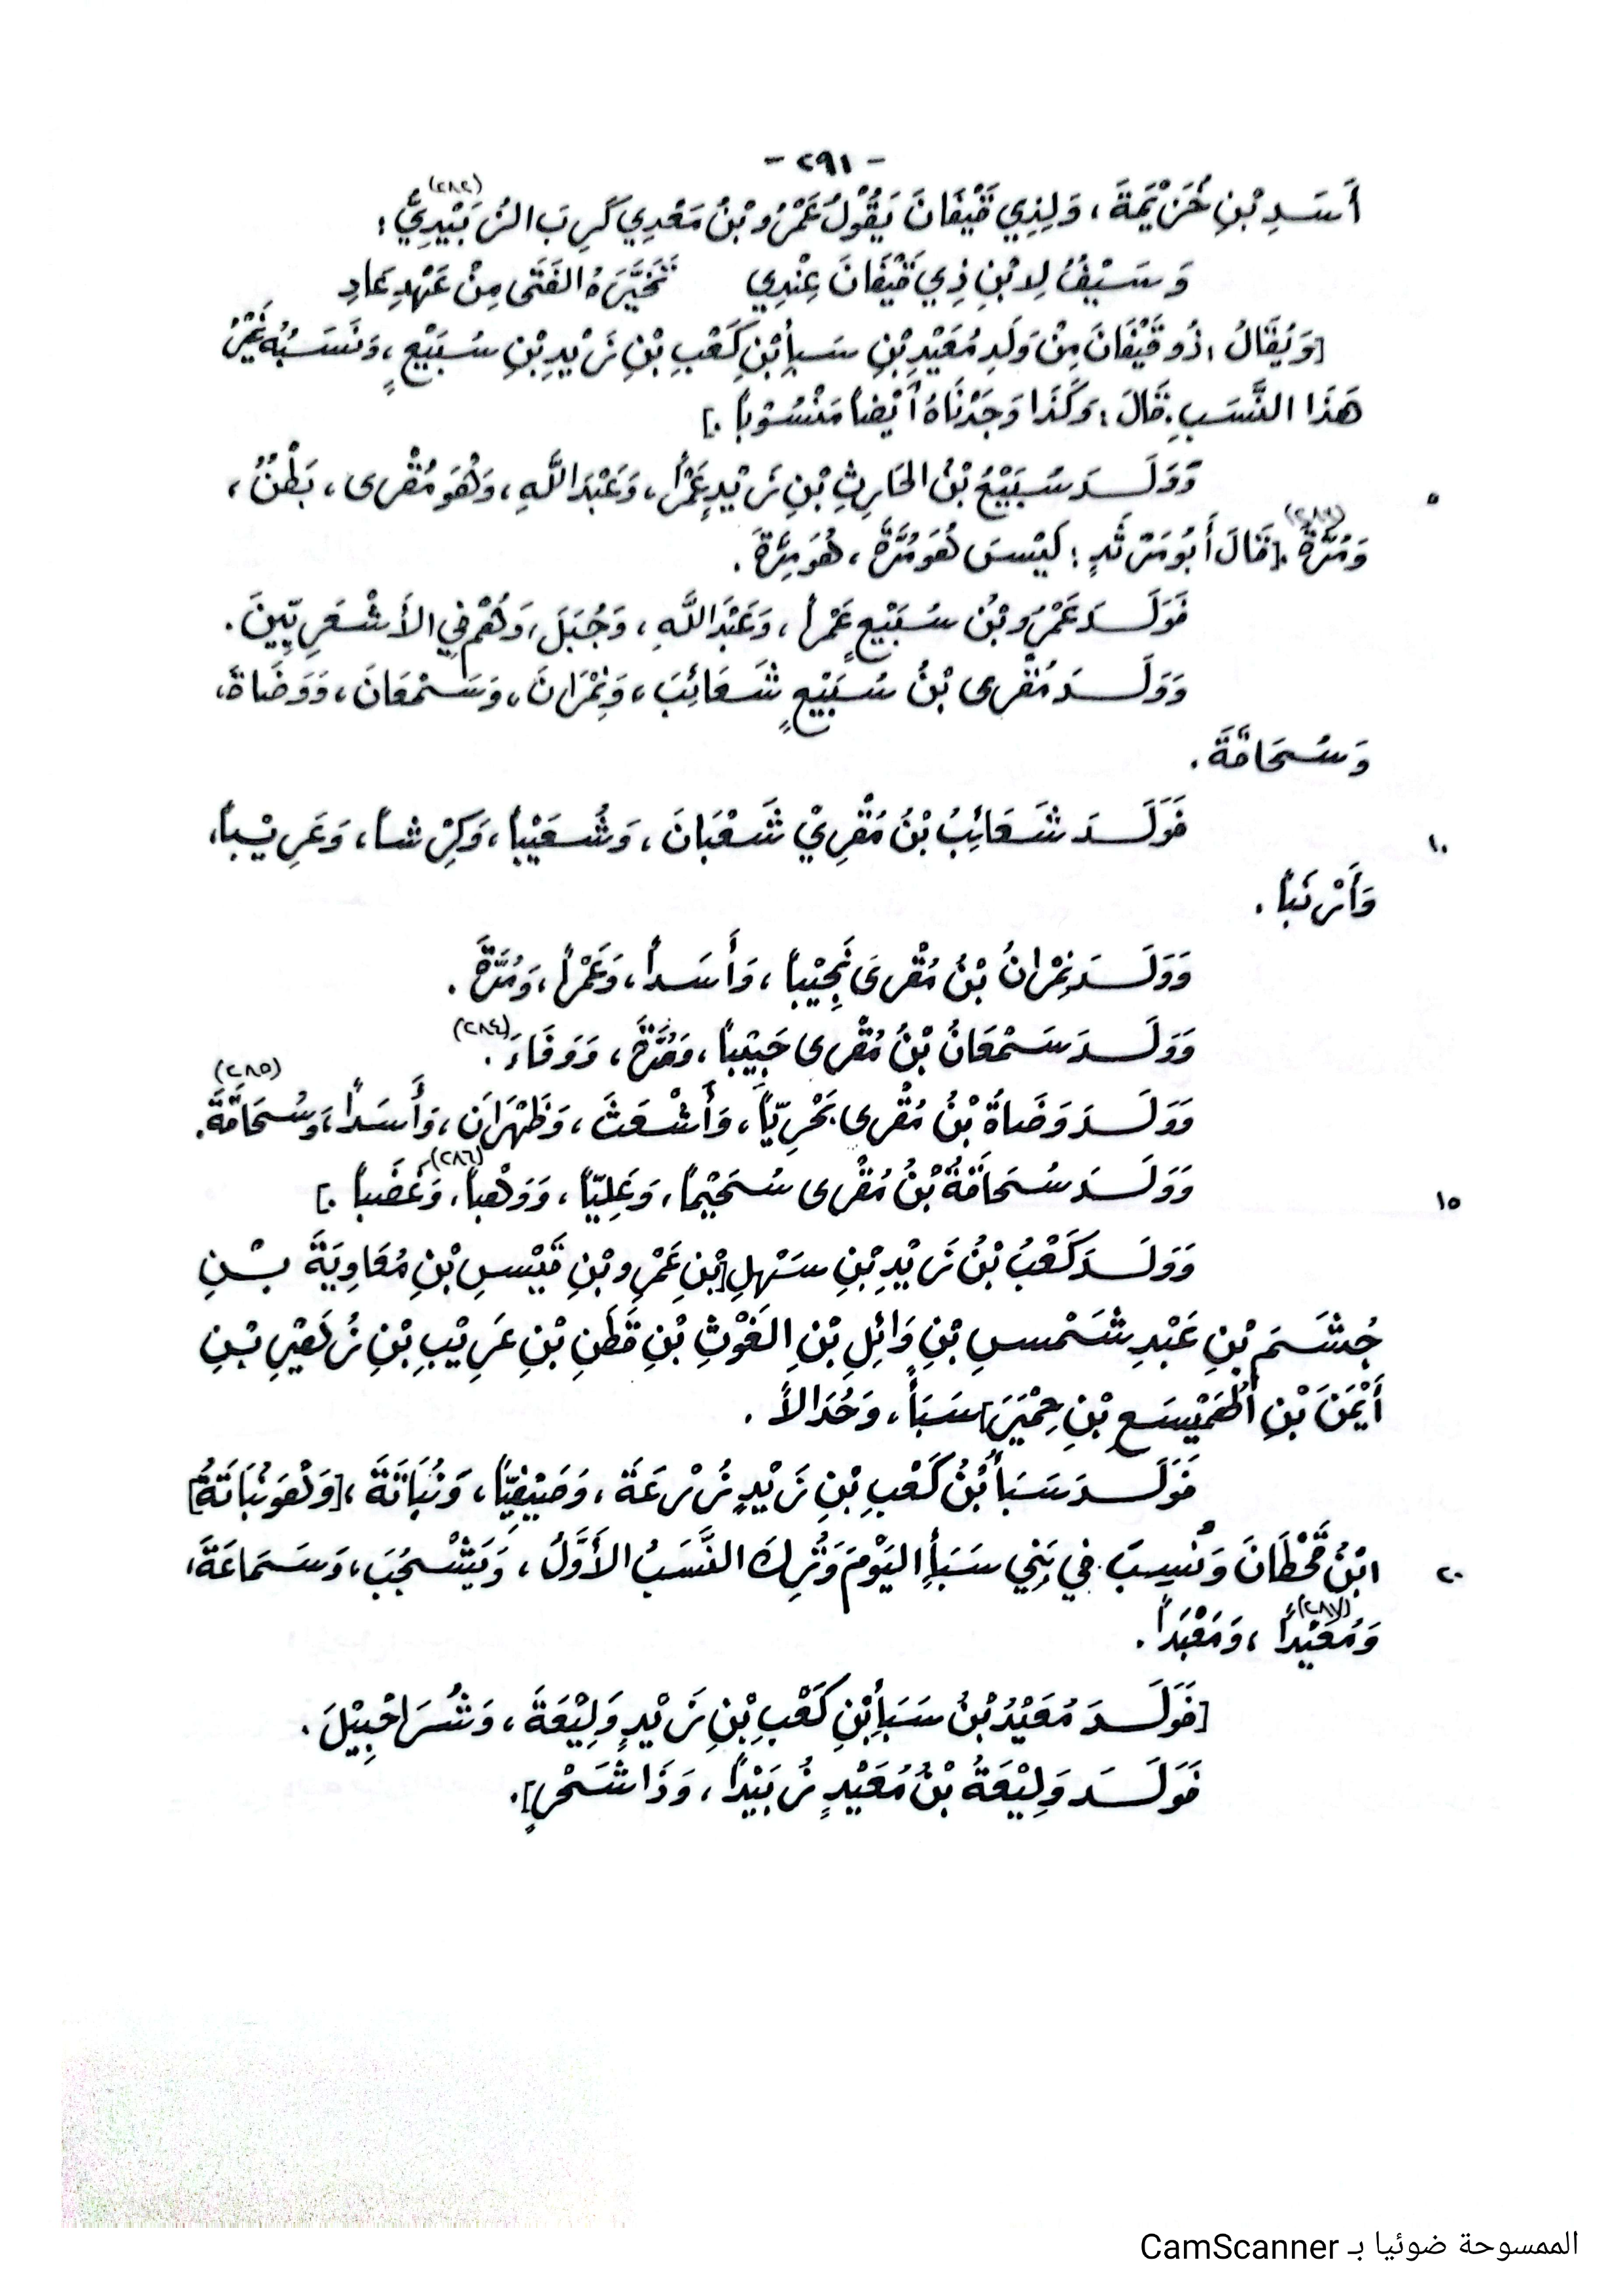 - ٢٩١ -
أَسَدِ بْنِ خُزَيْمَةَ ، وَلِذِي قَيْفَانَ يَقُوْلُ عَمْرُو بْنُ مَعْدِي كَرِبَ الزُّبَيْدِيُّ (٢٨٢) :
وَسَيْفٌ لِابْنِ ذِي قَيْفَانَ عِنْدِي تَخَيَّرَهُ الفَتَى مِنْ عَهْدِ عَادِ
[وَيُقَالُ : ذُو قَيْفَانَ مِنْ وَلَدِ مُعَيْدِ بْنِ سَبأِ بْنِ كَعْبِ بْنِ زَيْدِ بْنِ سُبَيْعٍ ، وَنَسَبُهُ غَيْرُ
هَذَا النَّسَبِ . قَالَ : وَكَذَا وَجَدْنَاهُ أَيْضاً مَنْسُوْباً .]
وَوَلَـدَ سُبَيْعُ بْنُ الحَارِثِ بْنِ زَيْدٍ عَمْراً ، وَعَبْدَ اللَّهِ ، وَهُوَ مُقْرى ، بَطْنٌ ، ٥
وَمُرَّةَ (٢٨٣) . [قَالَ أَبُو مَرْثَدٍ : لَيْسَ هُوَ مُرَّةَ ، هُوَ مِرَّةَ .
فَوَلَـدَ عَمْرُو بْنُ سُبَيْعٍ عَمْراً ، وَعَبْدَ اللَّهِ ، وَجُبَلَ ، وَهُمْ فِي الأَشْعَرِيِّينَ .
وَوَلَـدَ مُقْرى بْنُ سُبَيْعٍ شَعَائِبَ ، وَنِمْرَانَ ، وَسَمْعَانَ ، وَوَضَاةَ ،
وَسُحَامَّةَ .
فَوَلَـدَ شَعَائِبُ بْنُ مُقْرِيْ شَعْبَانَ ، وَشُعَيْباً ، وَكِرْشاً ، وَعَرِيْباً ، ١٠
وَأَرْنَباً .
وَوَلَـدَ نِمْرانُ بْنُ مُقْرىَ نَجِيْباً ، وَأَسَداً ، وَعَمْراً ، وَمُرَّةَ .
وَوَلَـدَ سَمْعَانُ بْنُ مُقْرى حَبِيْباً ، وَمُرَّةَ ، وَوَفَاءَ (٢٨٤) .
وَوَلَـدَ وَضَاةُ بْنُ مُقْرى بَحْرِيّاً ، وَأَشْعَثَ ، وَظَهْرَانَ ، وَأَسَداً ، وَسُحَامَّةَ (٢٨٥) .
وَوَلَـدَ سُحَامَّةُ بْنُ مُقْرى سُحَيْماً ، وَعَلِيّاً ، وَوَهْباً ، وَغَضَباً (٢٨٦) .] ١٥
وَوَلَـدَ كَعْبُ بْنُ زَيْدِ بْنِ سَهْلِ [بْنِ عَمْرِو بْنِ قَيْسِ بْنِ مُعَاوِيَةَ بْـنِ
جُشَمَ بْنِ عَبْدِ شَمْسِ بْنِ وَائِلِ بْنِ الغَوْثِ بْنِ قَطَنِ بْنِ عَرِيْبِ بْنِ زُهَيْرِ بْنِ
أَيْمَنَ بْنِ الهَمَيْسَعِ بْنِ حِمْيَرَ] سَبَأً ، وَحُدَالاً .
فَوَلَـدَ سَبَأُ بْنُ كَعْبِ بْنِ زَيْدٍ زُرْعَةَ ، وَصَيْفِيّاً ، وَنُبَاتَةَ ، [وَهُوَ نُبَاتَةُ]
ابْنُ قَحْطَانَ وَنُسِبَ فِي بَنِي سَبَأِ اليَوْمَ وَتُرِكَ النَّسَبُ الأَوَّلُ ، وَيَشْجُبَ ، وَسَمَاعَةَ ، ٢٠
وَمُعَيْداً (٢٨٧) ، وَمَعْبَداً .
[فَوَلَـدَ مُعَيْدُ بْنُ سَبَأِ بْنِ كَعْبِ بْنِ زَيْدٍ وَلِيْعَةَ ، وَشُرَاحْبِيْلَ .
فَوَلَـدَ وَلِيْعَةُ بْنُ مُعَيْدٍ زُبَيْداً ، وَذَا شَحْرٍ] .
الممسوحة ضوئيا بـ CamScanner